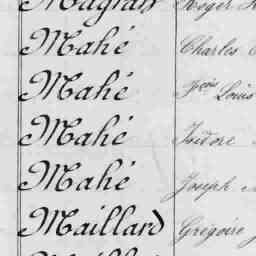 Magnan Roger
Mahé Charles
Mahé Frçois Louis
Mahé Isidore
Mahé Joseph
Maillard Grégoire